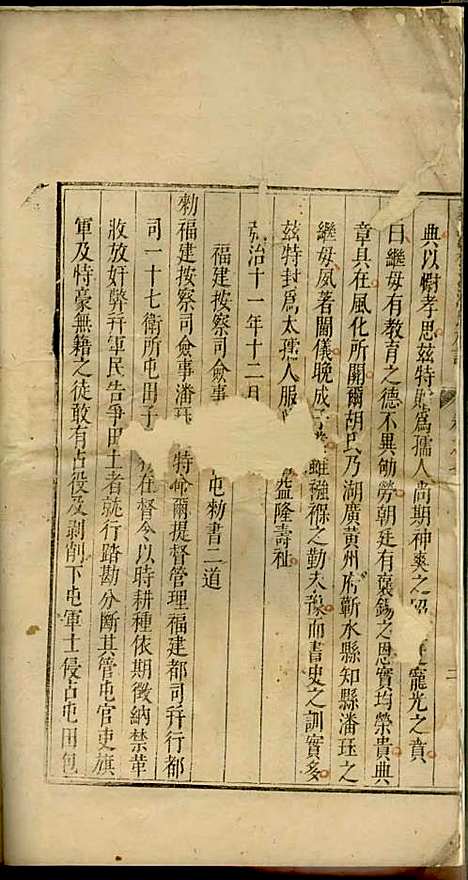 典以慰孝思茲特贈爲孺人尚期神爽之寵光之賁
曰繼母有教育之德不異劬勞朝廷有褒錫之恩實均榮貴典
章具在風化所關爾胡氏乃湖廣黃州府蘄水縣知縣潘珏之
繼母夙著閫儀晚成子雖襁褓之勤未豫而書史之訓實多
茲特封爲太孺人服益隆壽祉
弘治十一年十二月
福建按察司僉事屯勅書二道
勅福建按察司僉事潘珏特命爾提督管理福建都司幷行都
司一十七衛所屯田子在督令以時耕種依期徵納禁革
收放奸弊幷軍民告爭田土者就行踏勘分斷其管屯官吏旗
軍及恃豪無籍之徒敢有占役及剥削下屯軍士侵占屯田包
二